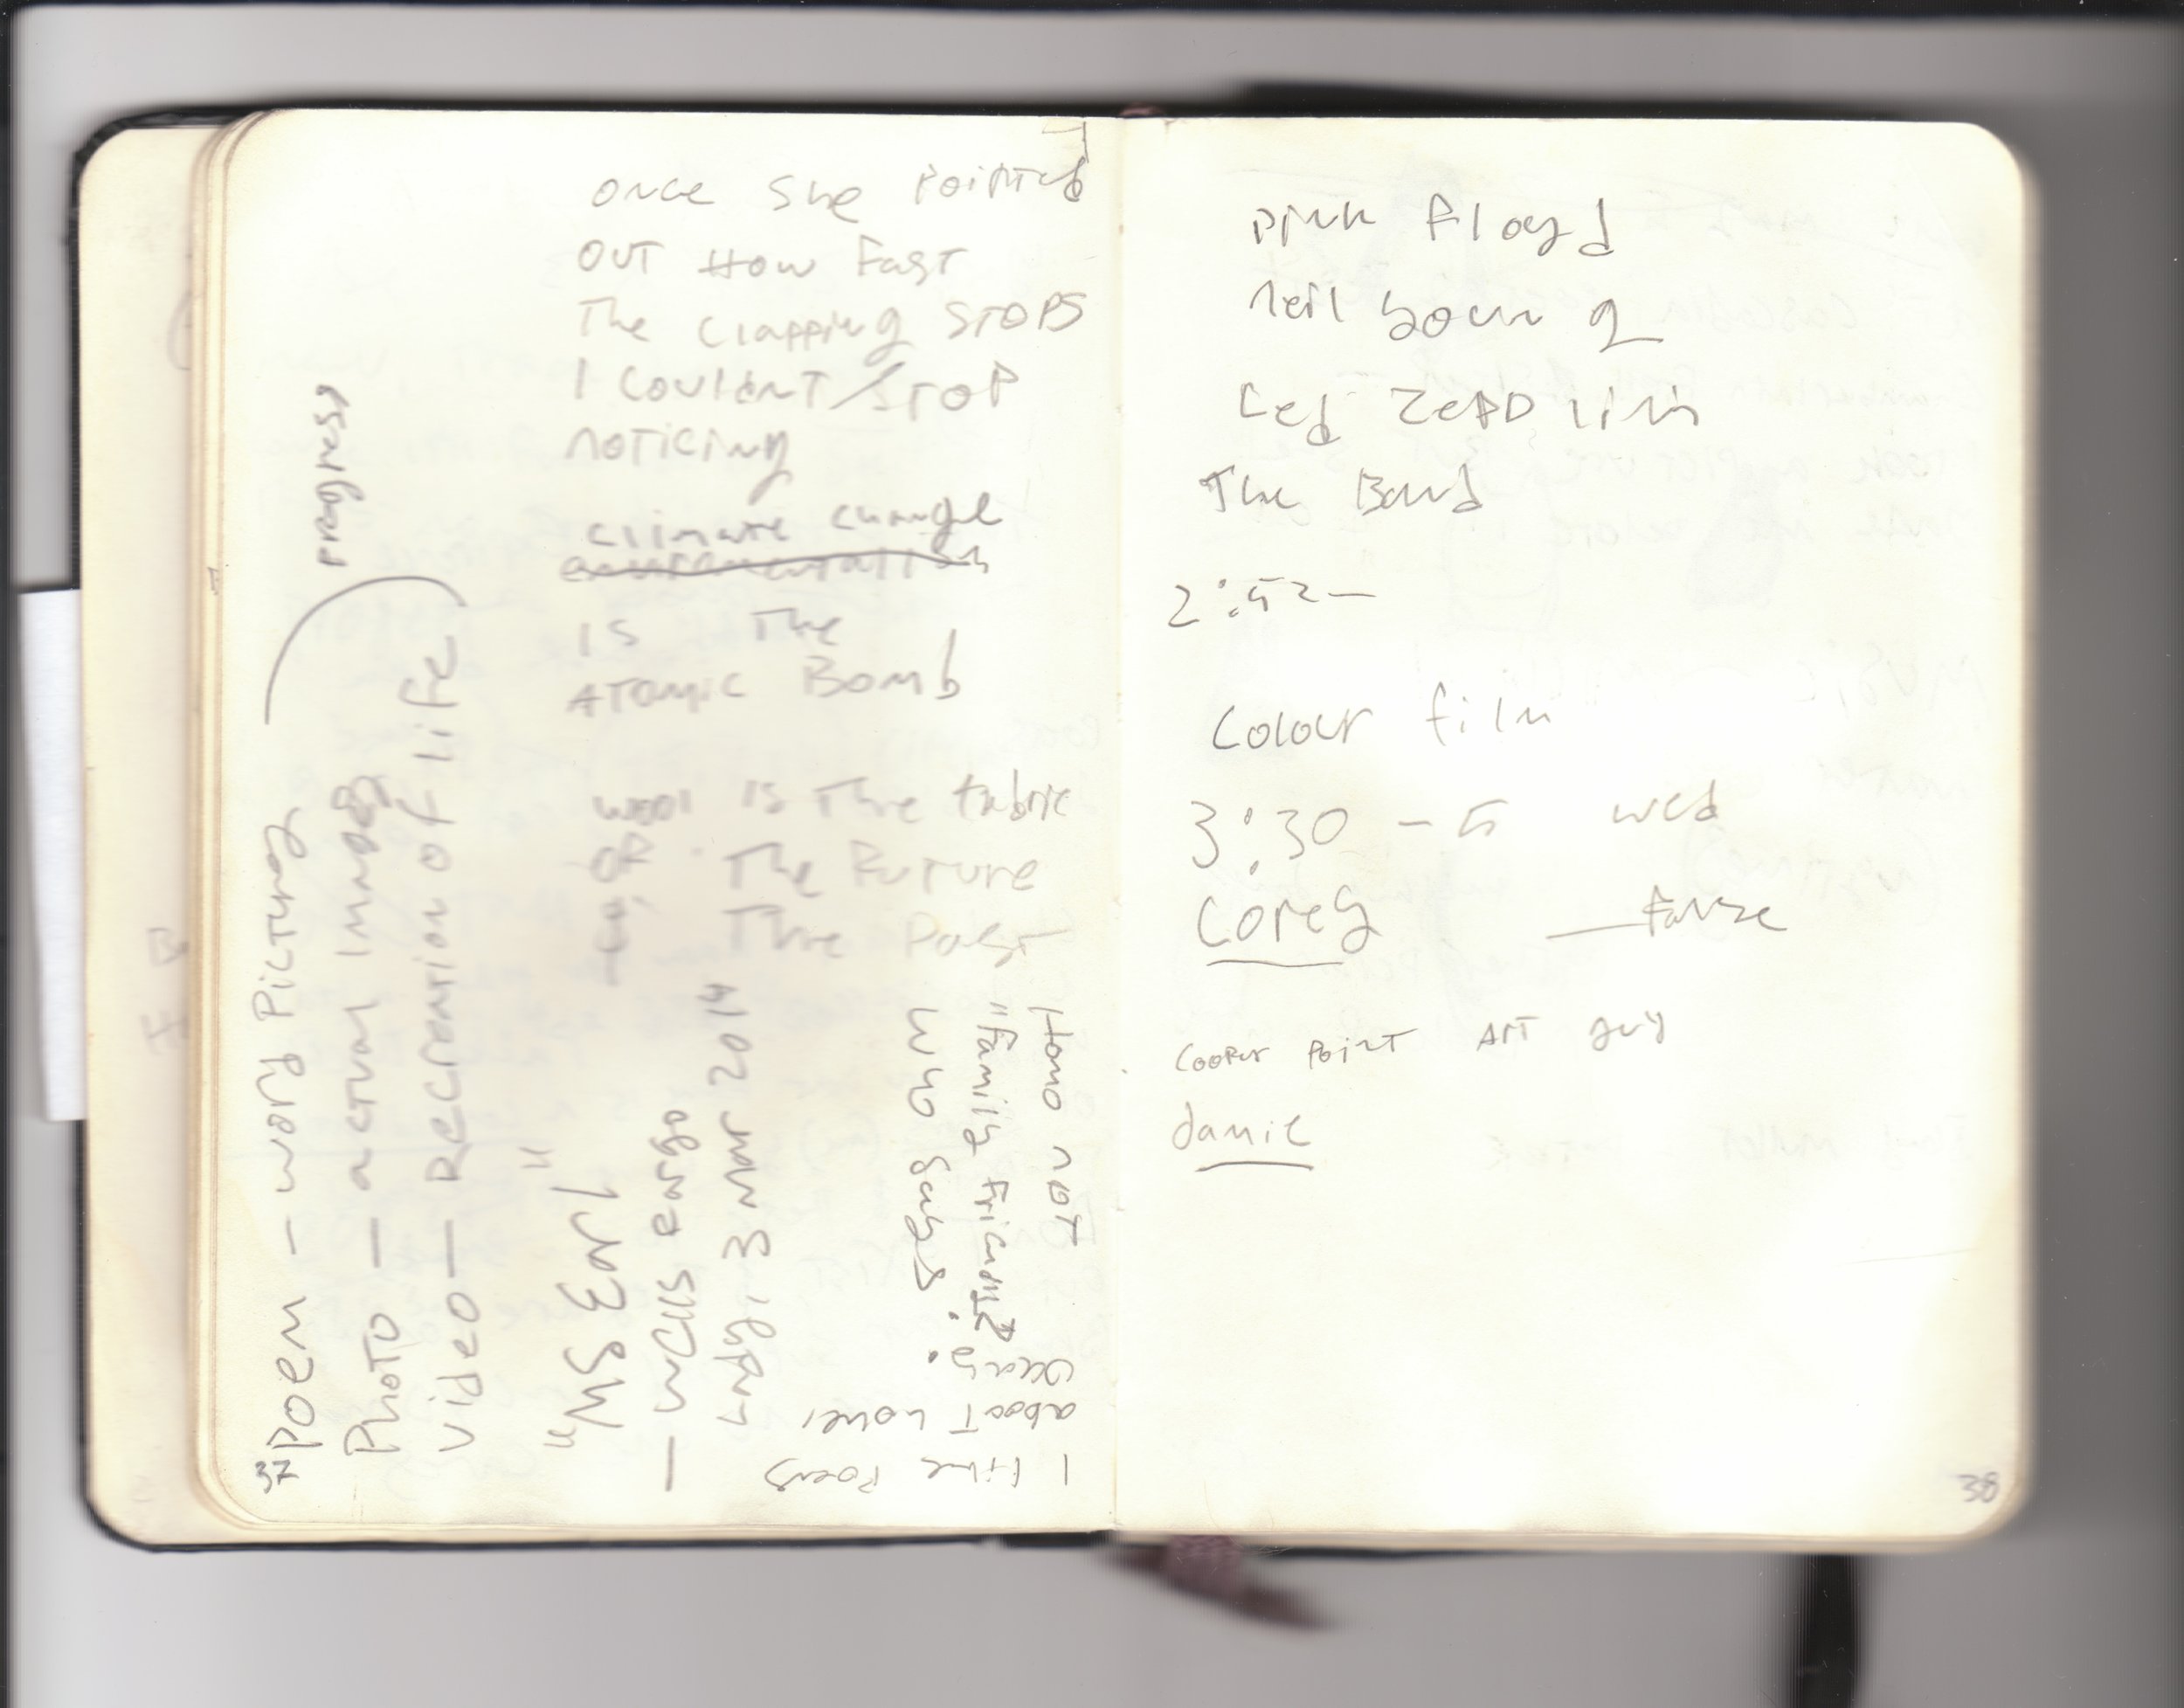 once she pointed
out How Fast
The clapping stops
I couldnt stop
noticing
climate change
is The
Atomic Bomb
wool is The fabric
of The Future
The Past
Poem - word Pictures
progress
Photo - actual Images
video - Recreation of life
"MS Earl"
- wells
3 Mar 2014
Who says.
"family friendly"
Homo not
okay.
I like Poems
about love,
37
pink floyd
neil young
Led Zepplin
The Band
2:52-
colour film
3:30 - 5 wed
Corey
cooper point art guy
damie
38